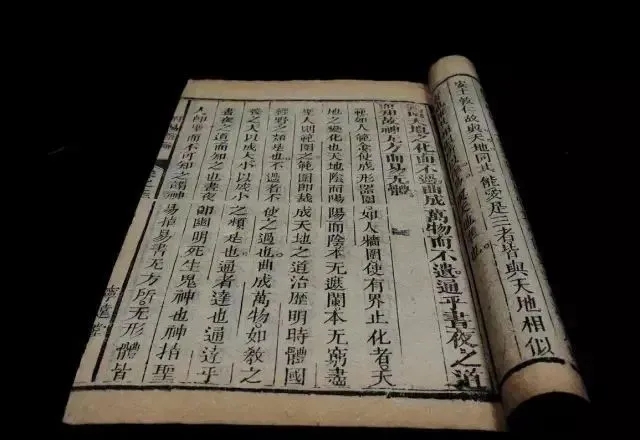 安土敦仁故與天地同能愛是三者皆與天地相似
範圍天地之化而不過曲成萬物而不遺通乎晝夜之道
而知故神无方而易无體
範如人範金使成形器圍如人牆圍使有界止化者天
地之變化也天地陰而陽陽而陰本无遮闌本无窮盡
聖人則範圍之範圍即裁成天地之道治歷明時體國
經野之類是也不過者不使之過也曲成萬物如教之
養之大以成大小以成小之類是也通者達也通達乎
晝夜之道而知之也晝夜即幽明死生鬼神也神指聖
人即聖而不可知之謂神易指易書无方所无形體皆